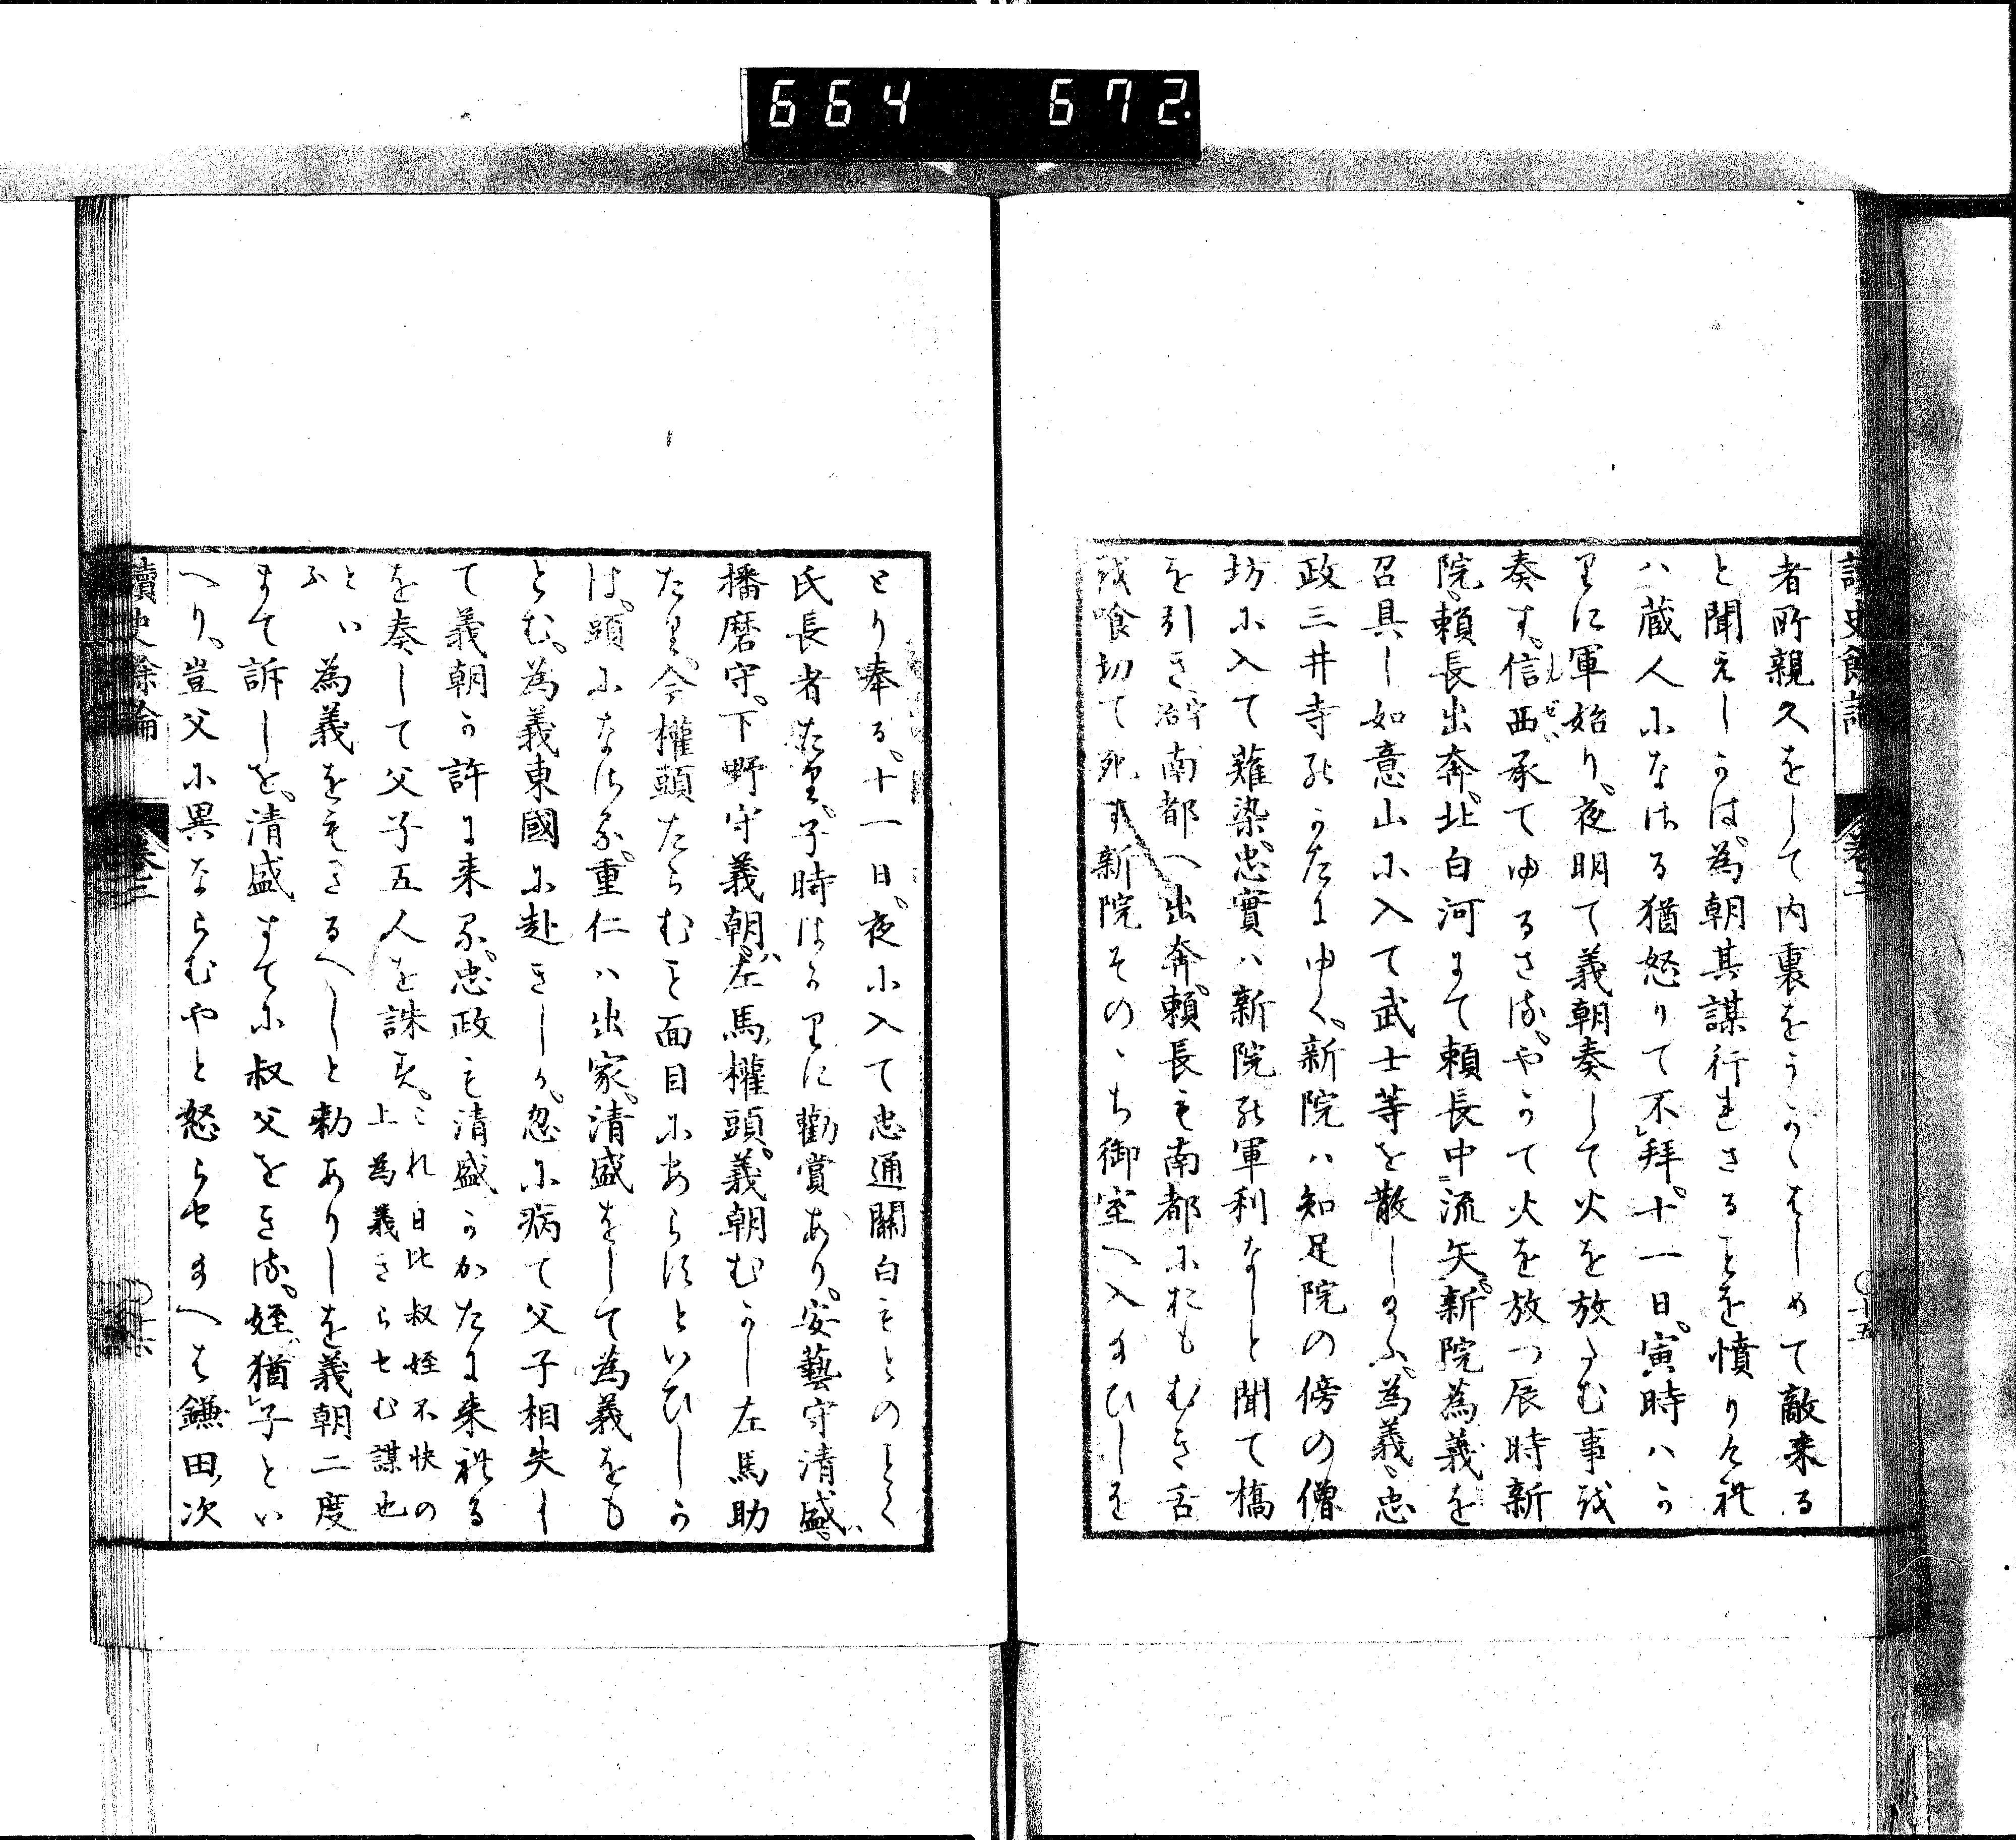 664 672
讀史餘論 卷二 〇十五
者所親久をしてめて内裏をうかゝはしめて敵来る
と聞えしかは為朝其謀行れさることを憤りけれ
ハ蔵人になさる猶怒りて不拜十一日寅時ハか
りに軍始り夜明て義朝奏して火を放たむ事を
奏す信西承てゆるさる、やかて火を放つ辰時新
院頼長出奔北白河まて頼長中流矢新院為義を
召具し如意山に入て武士等を散し給ふ為義忠
政三井寺のかたにゆく新院ハ知足院の傍の僧
坊に入て薙染忠實ハ新院の軍利なしと聞て橋
を引き宇治南都へ出奔頼長も南都におもむき舌
を喰切て死す新院そのゝち御室へ入給ひしを
とり奉る十一日夜に入て忠通關白もとのことく
氏長者たり子時はかりに勸賞あり安藝守清盛ハ
播磨守下野守義朝ハ左馬權頭義朝むかし左馬助
たり今權頭たらむこと面目にあらすといひしか
は頭になさる重仁ハ出家清盛をして為義をも
とむ為義東國に赴きしか忽に病て父子相失し
て義朝か許に来る忠政も清盛かかたに来れる
を奏して父子五人を誅すこれ日比叔姪不快の
上為義きらせむ謀也
といふ為義をもきるへしと勅ありしを義朝二度
まて訴しを清盛すてに叔父をきる姪猶子とい
へり豈父に異ならむやと怒らせ給へは鎌田次
讀史餘論 卷二 〇十六